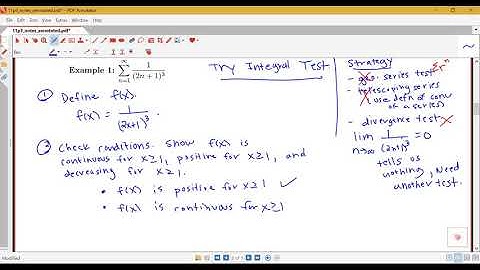 11p3_notes_annotated.pdf* - PDF Annotator
11p3_notes_annotated.pdf*
Example 1: ∑ n=1 ∞ 1/(2n+1)³
Try Integral Test
① Define f(x).
f(x) = 1/(2x+1)³ .
② Check conditions. Show f(x) is
continuous for x≥1, positive for x≥1, and
decreasing for x≥1.
• f(x) is positive for x≥1 ✓
• f(x) is continuous for x≥1
Strategy
- geo. series test
- telescoping series
(use defn of conv
of a series)
- divergence test
lim n→∞ 1/(2n+1)³ = 0
tells us
nothing, Need
another test.
Modified